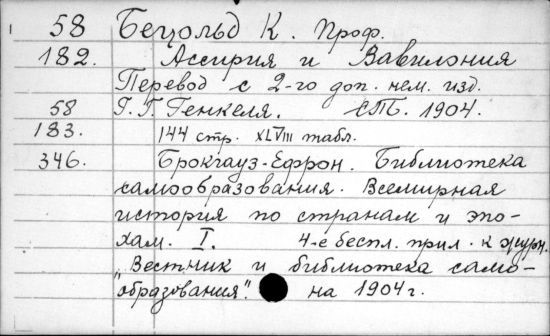 58 Бецольд К. Проф.
182. Ассирия и Вавилония
Перевод с 2-го доп. нем. изд.
58 Г. Г. Генкеля. СПб. 1904.
183. 144 стр. XLVIII табл.
346. Брокгауз-Ефрон. Библиотека
самообразования. Всемирная
история по странам и эпо-
хам. I. 4-е беспл. прил. к журн.
„Вестник и библиотека само-
образования". на 1904 г.